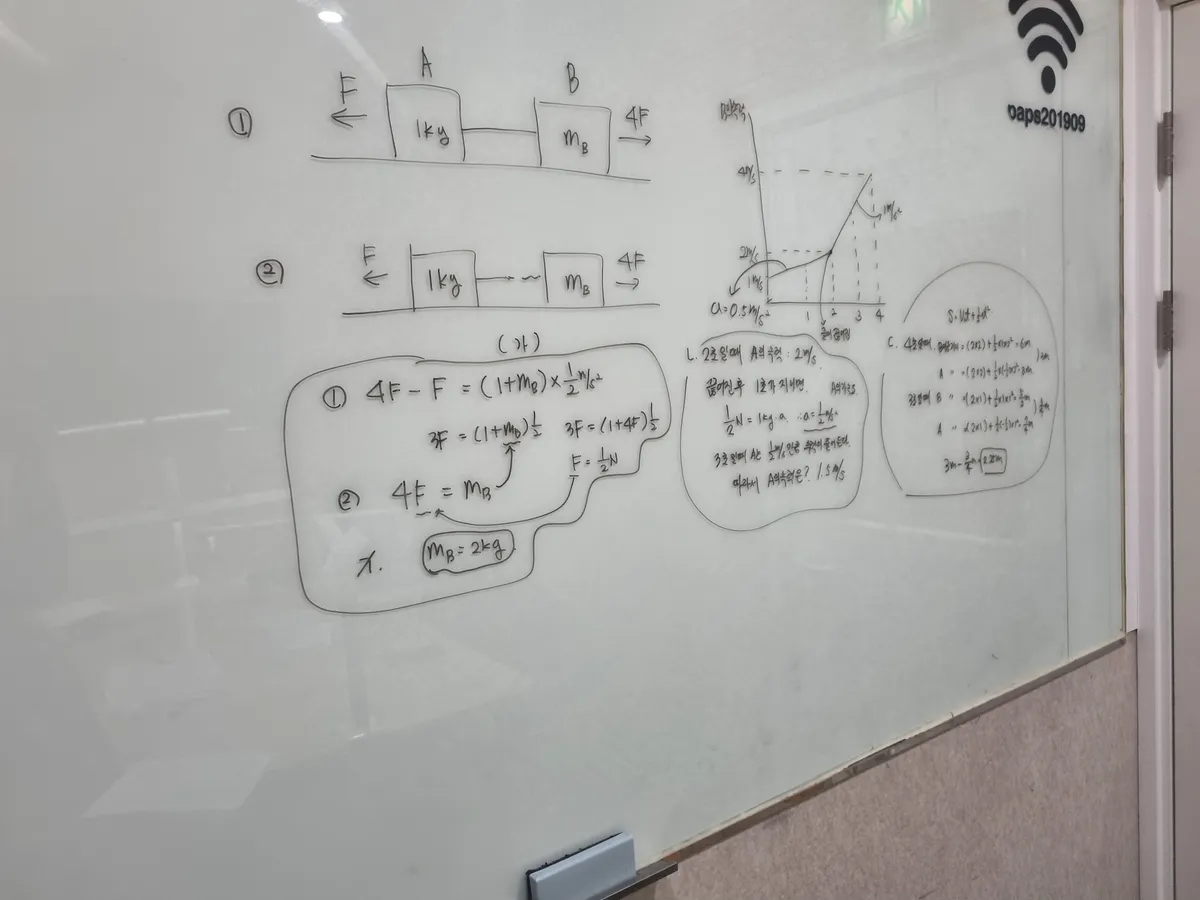 ①
F
A
1kg
B
mB
4F
②
F
1kg
mB
4F
(가)
① 4F - F = (1+mB) × 1/2 m/s²
3F = (1+mB)1/2 3F = (1+4F)1/2
F = 1/2 N
② 4F = mB
ㄱ. mB = 2kg
4m/s
2m/s
1m/s
1m/s²
a=0.5m/s²
1 2 3 4
ㄴ. 2초일때 A의속력 : 2m/s
끊어진후 1초가 지나면
1/2 N = 1kg·a ∴a=1/2 m/s²
3초일때 A는 1/2 m/s 만큼 속력이 줄어든다.
따라서 A의속력은? 1.5m/s
ㄷ. 4초일때
3초일때 B
A
oaps201909